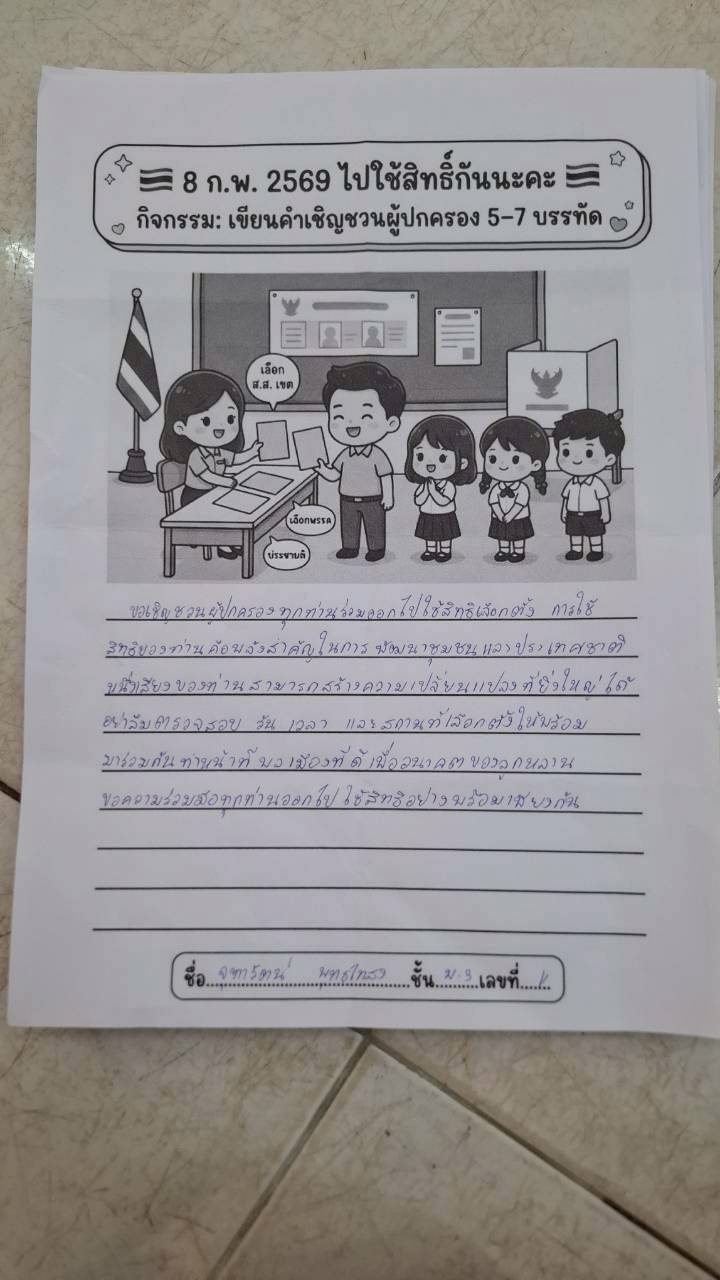 8 ก.พ. 2569 ไปใช้สิทธิ์กันนะคะ
กิจกรรม: เขียนคำเชิญชวนผู้ปกครอง 5-7 บรรทัด
เลือก
ส.ส. เขต
เลือกพรรค
ประชามติ
ขอเชิญชวนผู้ปกครองทุกท่านร่วมออกไปใช้สิทธิเลือกตั้ง การใช้
สิทธิของท่านคือพลังสำคัญในการพัฒนาชุมชนและประเทศชาติ
หนึ่งเสียงของท่านสามารถสร้างความเปลี่ยนแปลงที่ยิ่งใหญ่ได้
อย่าลืมตรวจสอบ วัน เวลา และสถานที่เลือกตั้งให้พร้อม
มาร่วมกันทำหน้าที่พลเมืองที่ดีเพื่ออนาคตของลูกหลาน
ขอความร่วมมือทุกท่านออกไปใช้สิทธิอย่างพร้อมเพียงกัน
ชื่อ ชั้น ม.3 เลขที่